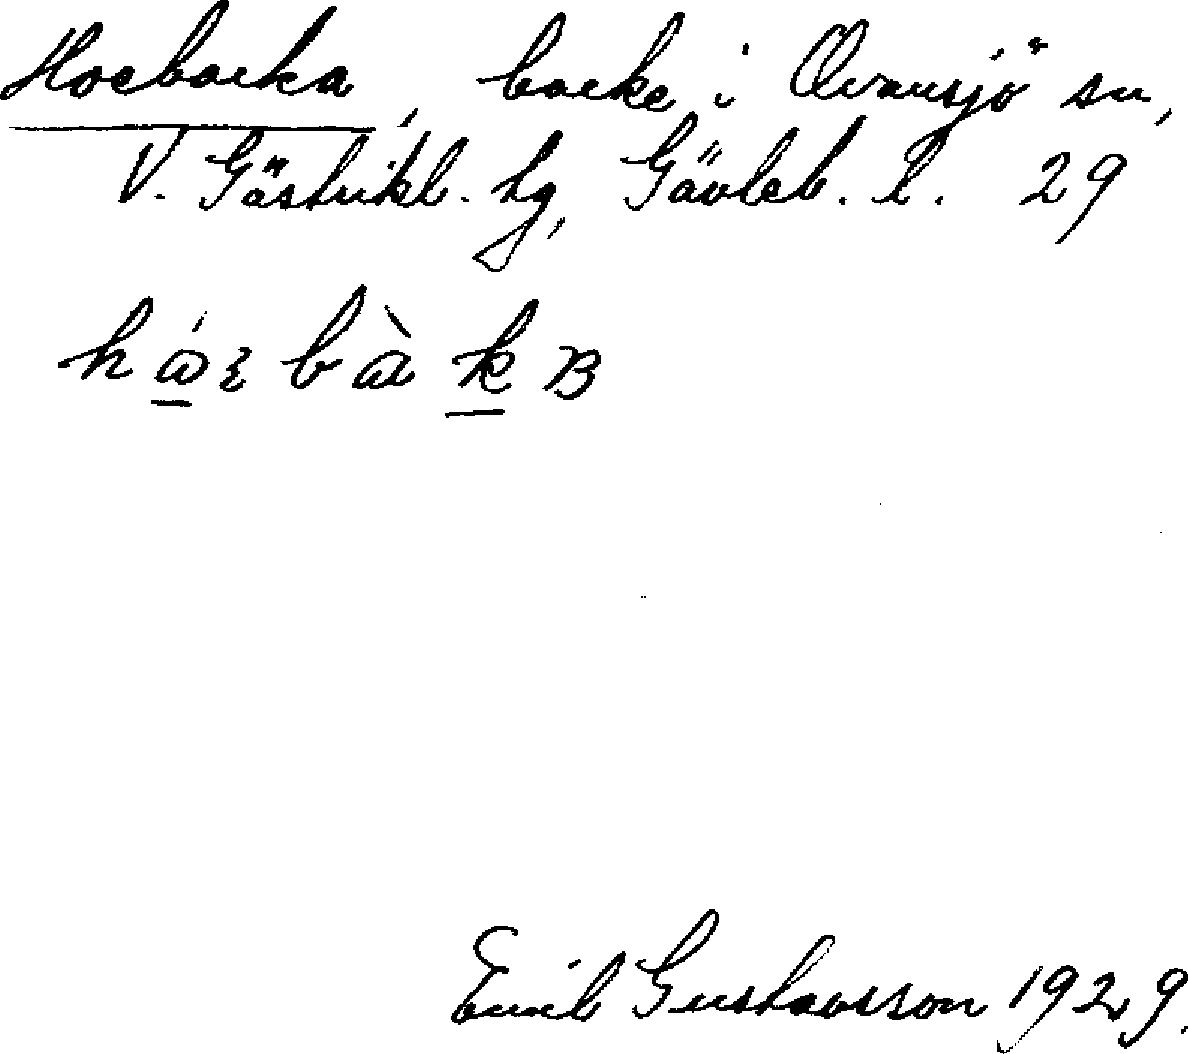 Hoebacka, backe i Ovansjö sn,
V. Gästrikl. hg, Gävleb. l. 29
Emil Gustavsson 1929.